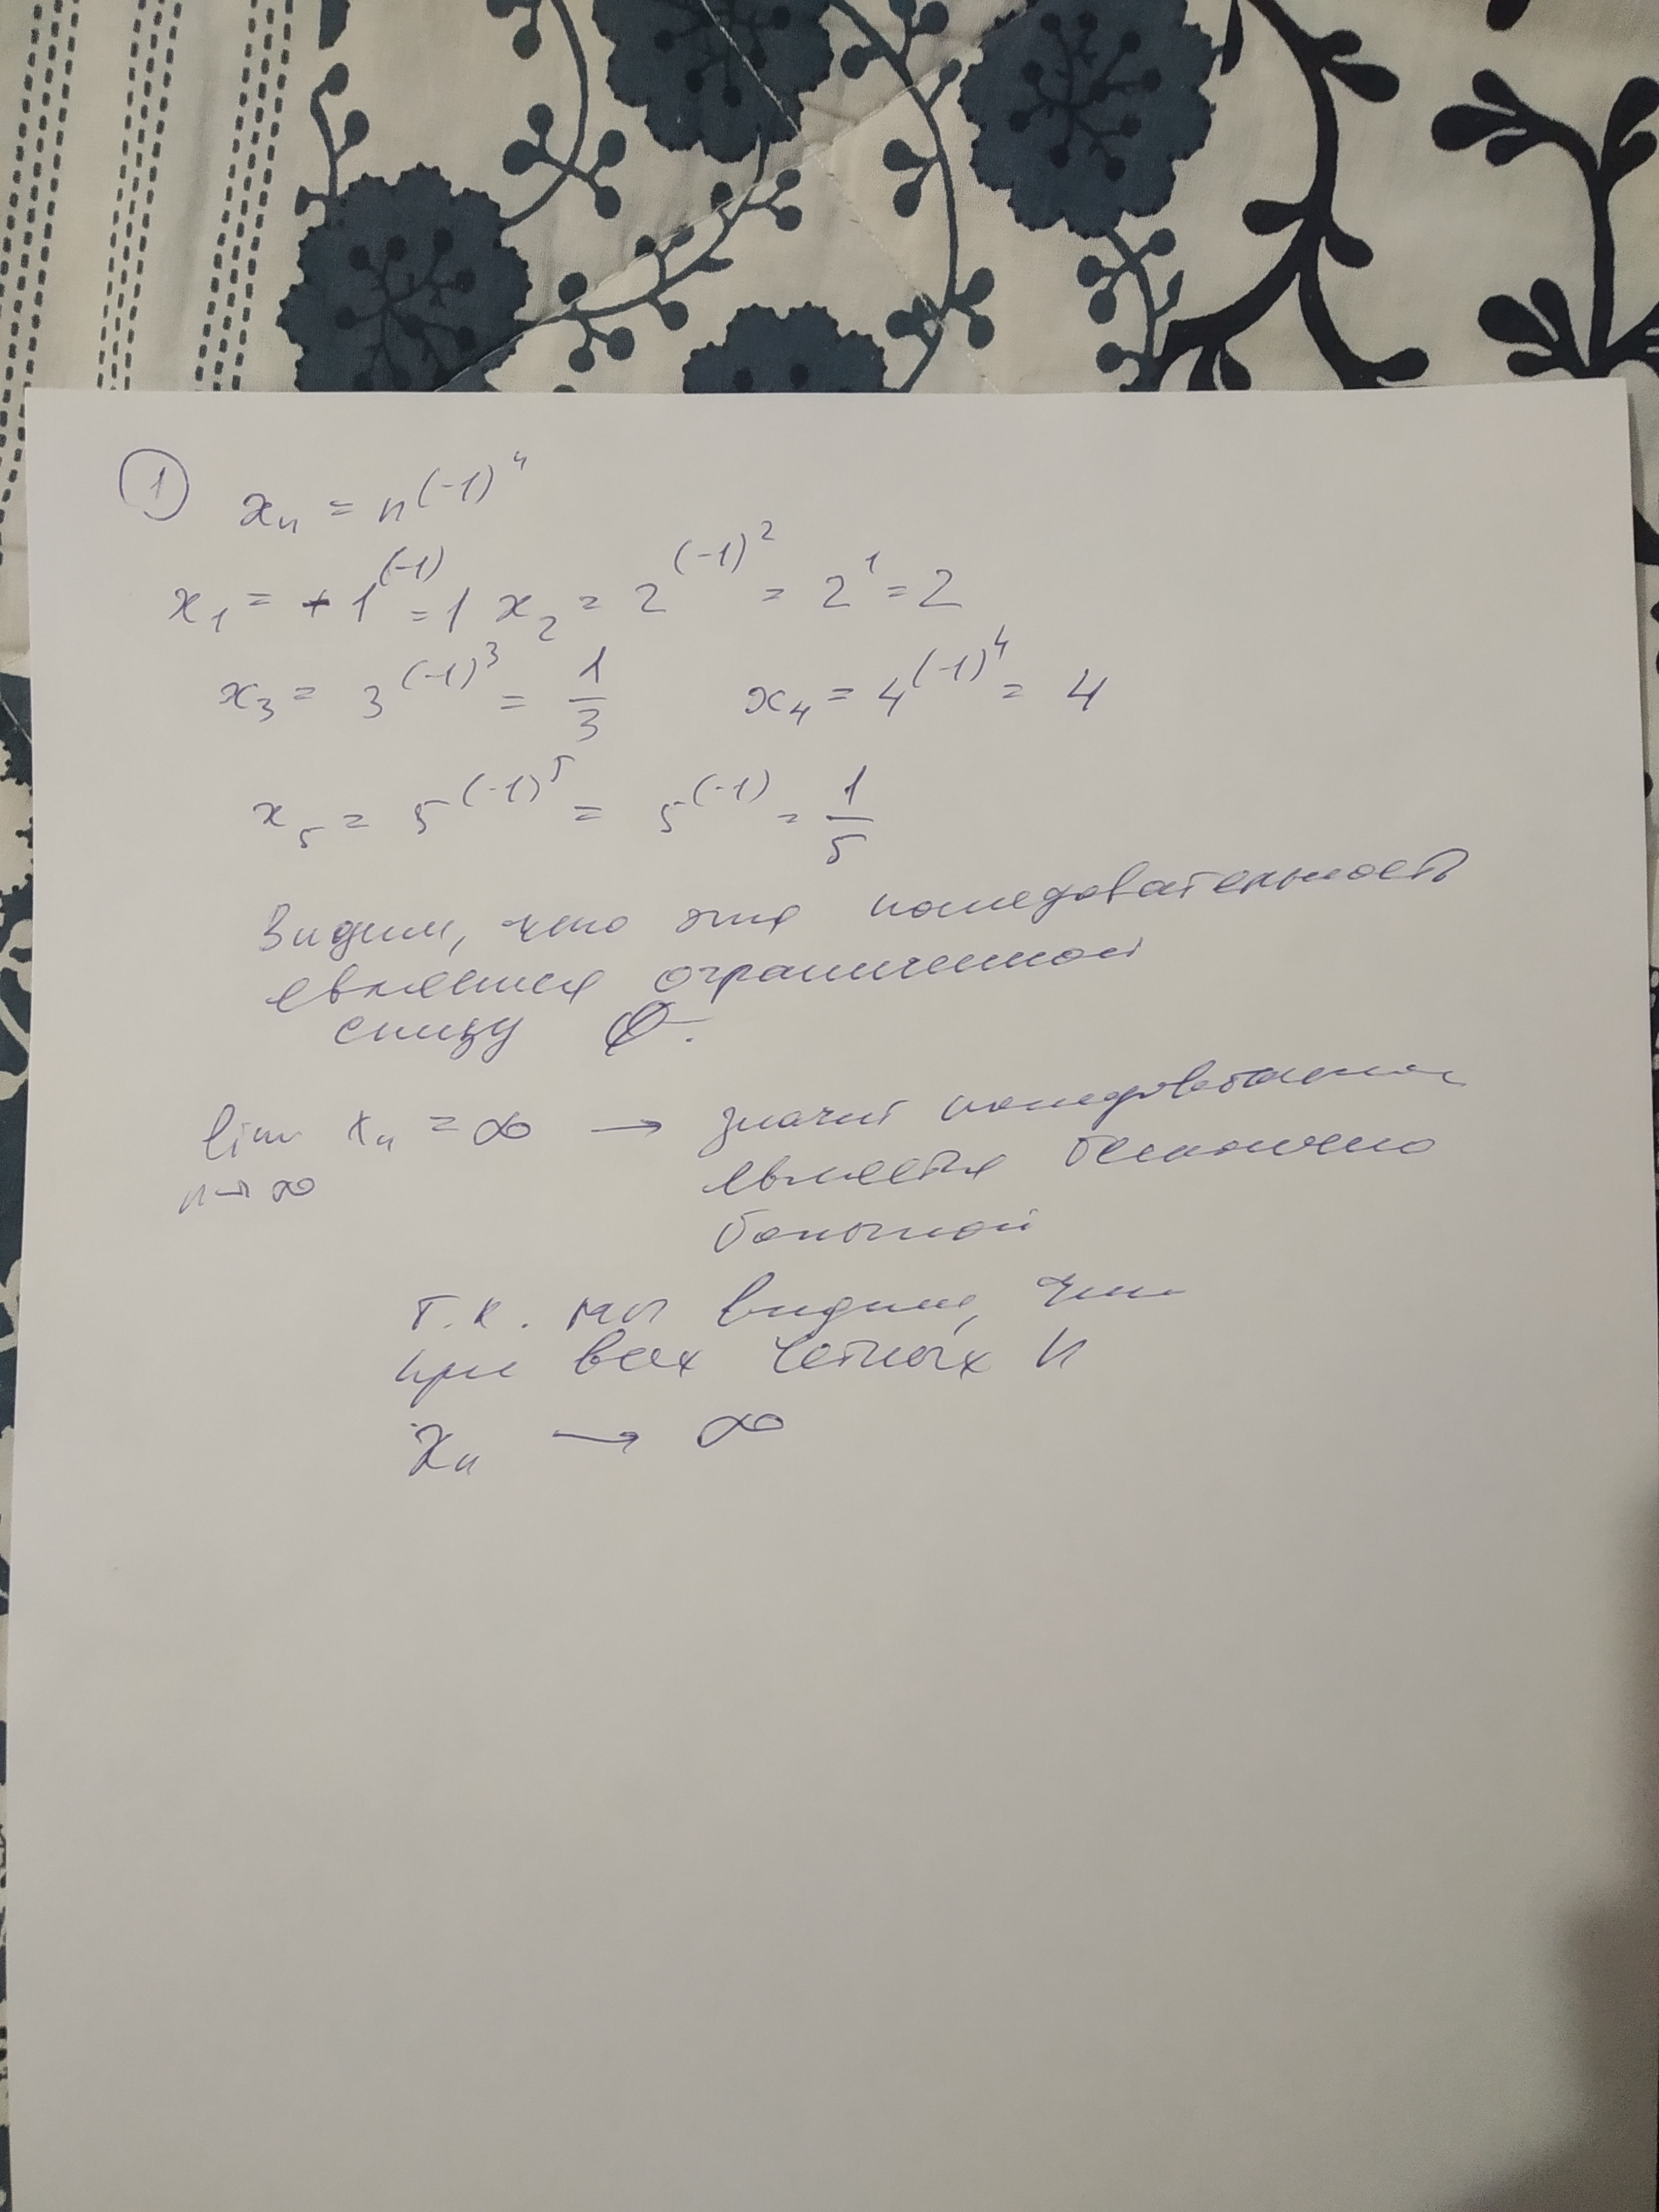 1 xₙ = n^(-1)^n
x₁ = 1^(-1) = 1 x₂ = 2^(-1)^2 = 2^1 = 2
x₃ = 3^(-1)^3 = 1/3 x₄ = 4^(-1)^4 = 4
x₅ = 5^(-1)^5 = 5^(-1) = 1/5
Видим, что эта последовательность
является ограниченной
снизу 0.
lim xₙ = ∞ → значит последовательность
n→∞ является бесконечно
большой
т.к. мы видим, что
при всех чётных n
xₙ → ∞